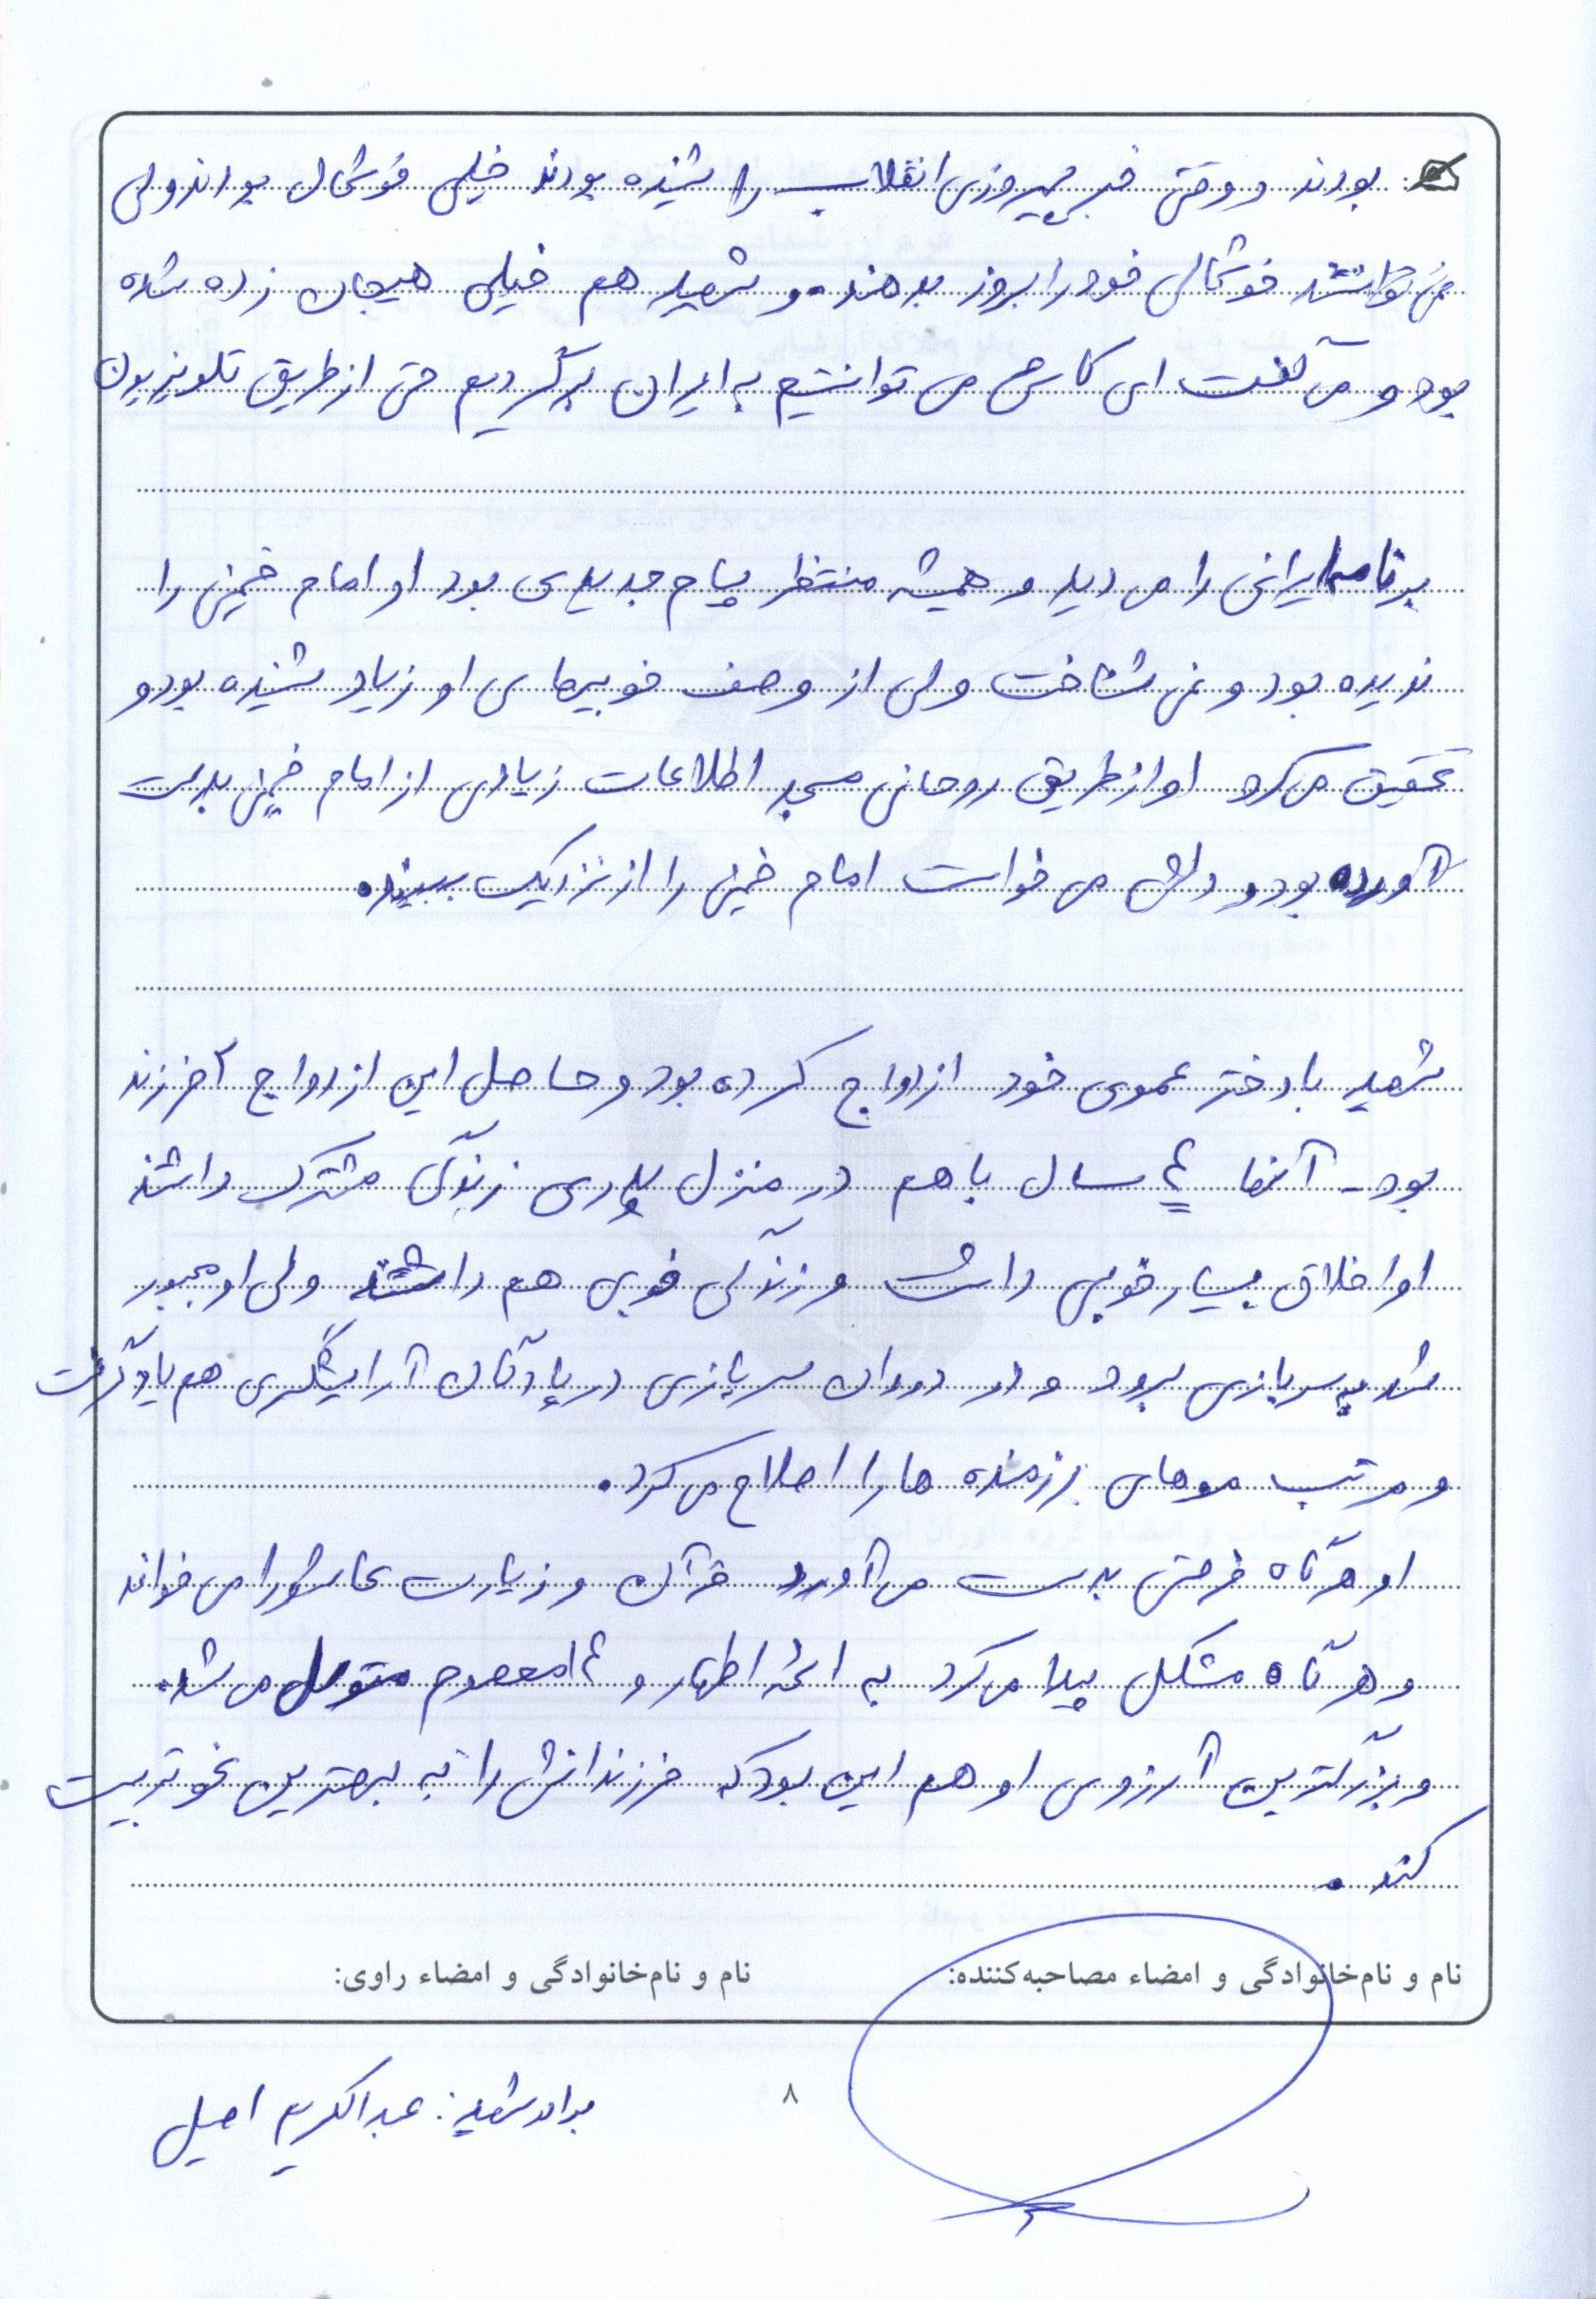 بودند و وقتی خبر پیروزی انقلاب را شنیده بودند خیلی خوشحال بودند ولی
نمی توانستند خوشحالی خود را بروز بدهند و شهید هم خیلی هیجان زده شده
بود و می گفت ای کاش می توانستیم به ایران برگردیم حتی از طریق تلویزیون
برنامه ایرانی را می دید و همیشه منتظر پیام جدیدی بود او امام خمینی را
ندیده بود و نمی شناخت ولی از وصف خوبیهای او زیاد شنیده بود و
تحقیق می کرد او از طریق روحانی مسجد اطلاعات زیادی از امام خمینی بدست
آورده بود و دلش می خواست امام خمینی را از نزدیک ببیند.
شهید با دختر عموی خود ازدواج کرده بود و حاصل این ازدواج ۲ فرزند
بود - آنها ۴ سال با هم در منزل پدری زندگی مشترک داشتند
او اخلاق بسیار خوبی داشت و زندگی خوبی هم داشتند ولی او مجبور
شد به سربازی برود و در دوران سربازی در پادگان آرایشگری هم یاد گرفت
و مرتب موهای رزمنده ها را اصلاح می کرد.
او هرگاه فرصتی بدست می آورد قرآن و زیارت عاشورا می خواند
و هرگاه مشکل پیدا می کرد به ائمه اطهار و ۱۴ معصوم متوسل می شد.
و بزرگترین آرزوی او هم این بود که فرزندانش را به بهترین نحو تربیت
کند.
نام و نام‌خانوادگی و امضاء مصاحبه‌کننده: نام و نام‌خانوادگی و امضاء راوی:
۸
برادر شهید: عبدالکریم اصیل